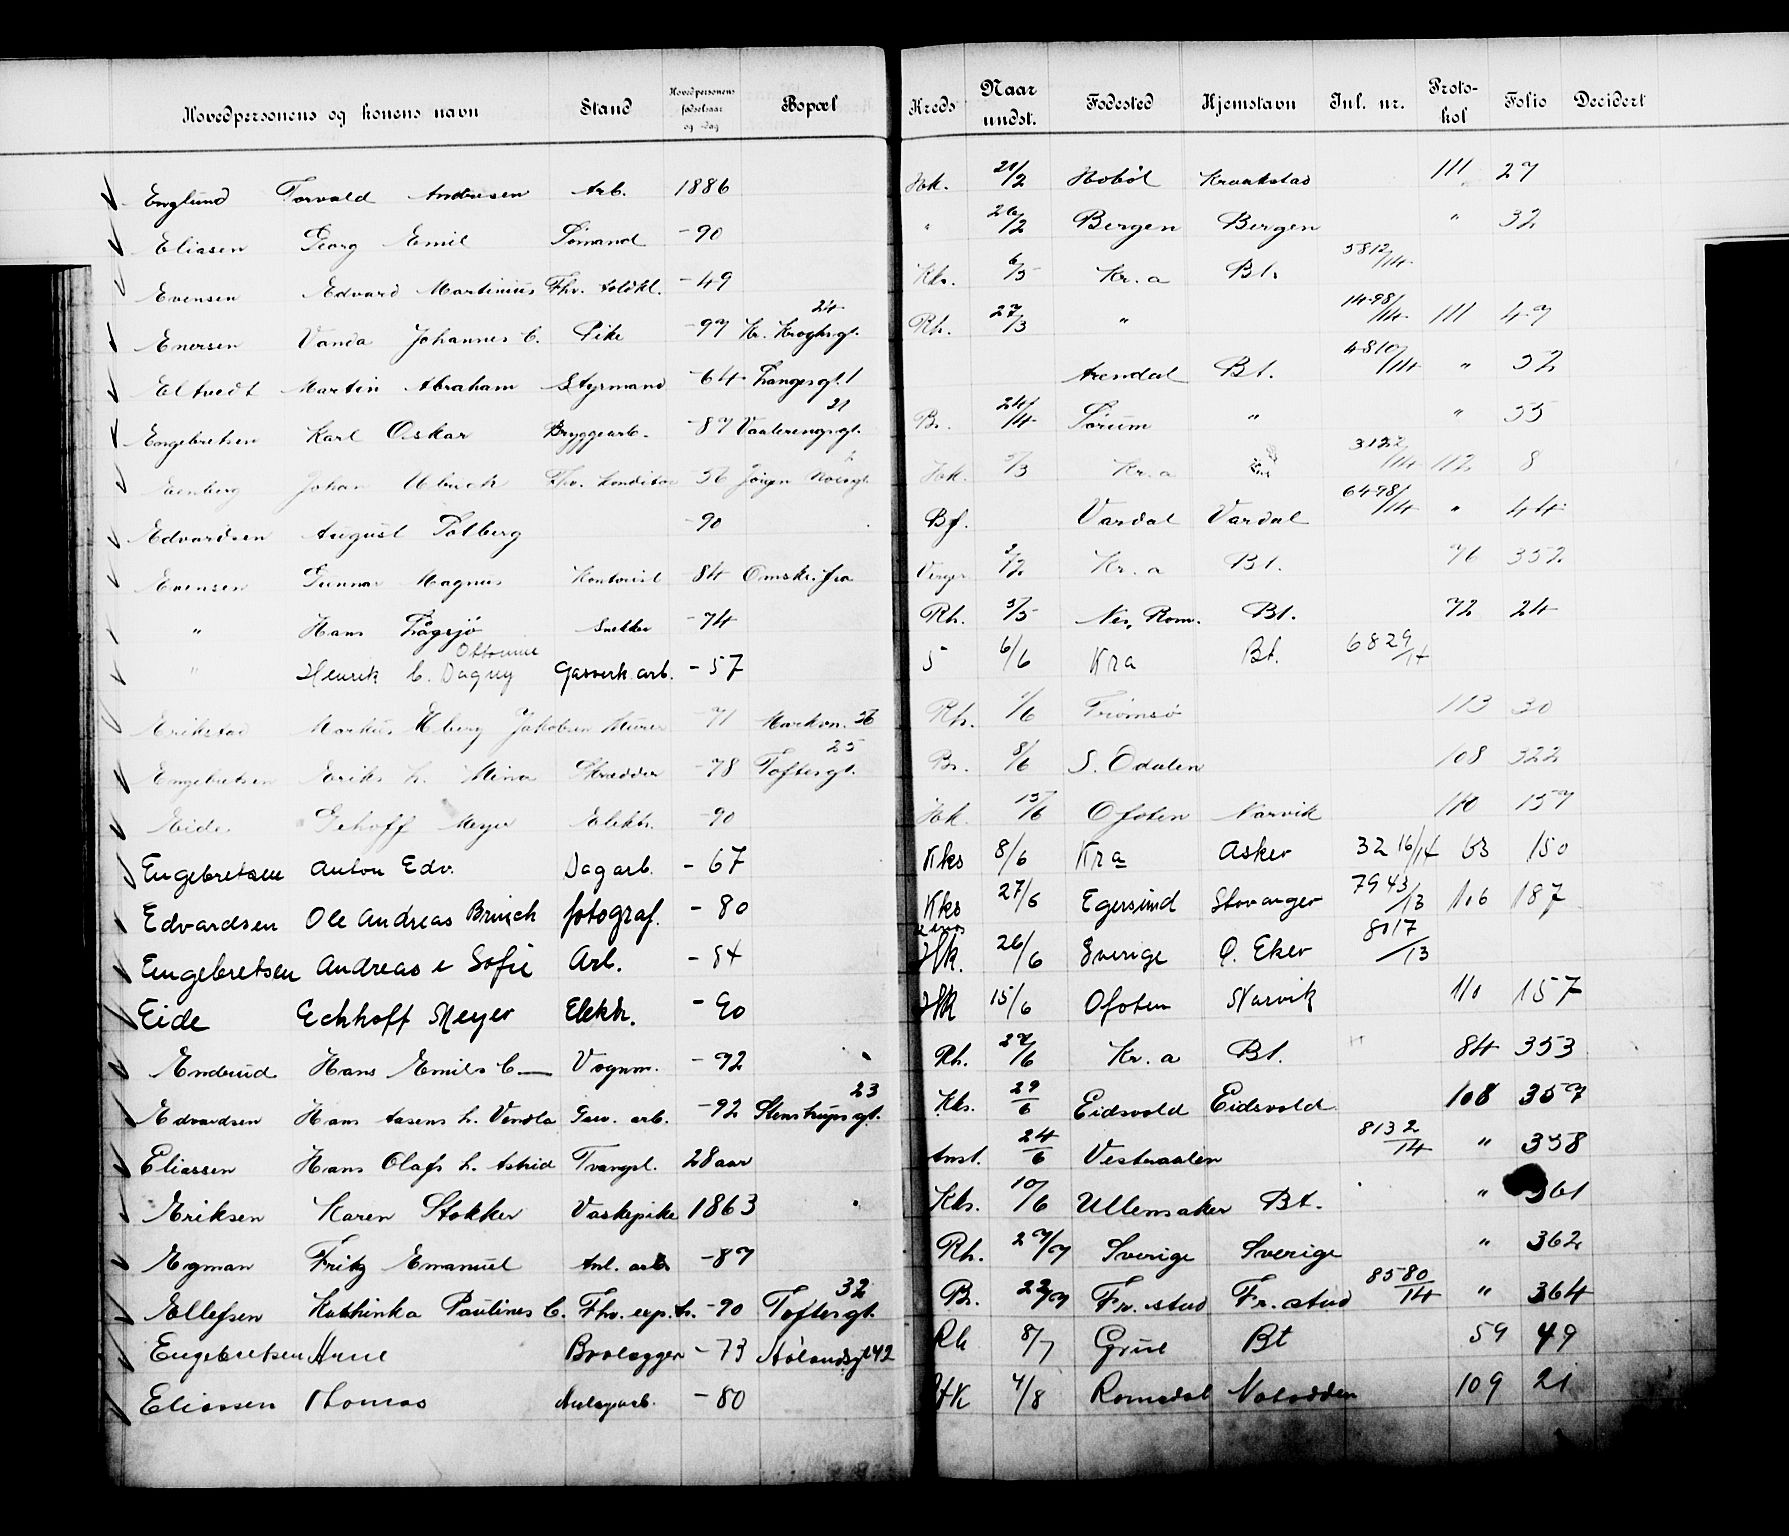 Hovedpersonens og konens navn Stand Hovedpersonens fødselsaar og -dag Bopæl Kreds Naar undst. Fødested Hjemstavn Jnl. nr. Protokol Folio Decidert
Englund Torvald Andresen Arb. 1886 Hk. 21/2 Hobøl Kraakstad 111 27
Eliasen Georg Emil Sømand -90 " 26/2 Bergen Bergen " 32
Evensen Edvard Martinius Fhv. toldkl. -49 Kks. 6/5 Kr.a Bt. 5812/14
Enersen Vanda Johannes C. Pike -97 Kr. Kroghsgt. 24 Rh. 27/3 " 1498/14 111 47
Eltvedt Martin Abraham Styrmand -64 Langesgt. 1 Arendal Bt. 4810/14 " 52
Engebretsen Karl Oskar Bryggearb. -87 Vaalerengsgt. 21 B. 24/4 Sørum " " 55
Johan Fhv. konditor -56 Jørgen Hk. /3 Kr.a 3122/14 112 8
Edvardsen August Solberg -90 Bf. Vardal Vardal 6498/14 " 44
Evensen Gunnar Magnus Kontorist -84 Omskr. fra Verger 2/2 Kr.a Bt. 76 352
" Hans Snekker -74 Rh. 5/5 Nes, Rom. Bt. 72 24
" Henrik C. Dagny Ottonine Gasverk.arb. -57 5 6/6 Kra Bt. 6829/14
Erikstad Markus Jakobsen Murer -71 Markvn. 56 Rh. /6 Tromsø 113 30
Engebretsen Eriks h. Mina Skrædder -78 Toftesgt. 25 Br. 8/6 S. Odalen 108 322
Eide Eckhoff Meyer Elektr. -90 Hk. 15/6 Ofoten Narvik 110 157
Engebretsen Anton Edv. Dagarb. -67 Kks 8/6 Kra Asker 3216/14 63 150
Edvardsen Ole Andreas Brinch fotograf. -80 Kks 27/6 Egersund Stavanger 7943/13 106 187
Engebretsen Andreas e Sofie Arb. -54 Hk. 26/6 Sverige Ø. Eker 8017/13
Eide Echhoff Meyer Elektr. -90 Hk 15/6 Ofoten Narvik 110 157
Enderud Hans Emils C. Vognm. -92 Rh. 27/6 Kr.a Bt. 84 353
Edvardsen Hans Aasens h. Vendla Garv. arb. -92 Stenstrupsgt. 23 Kks. 29/6 Eidsvold Eidsvold 108 357
Eliassen Hans Olafs h. Astrid Tvangsl. 28 aar Anst. 24/6 Vesteraalen 8132/14 " 358
Eriksen Karen Stokker Vaskepike 1863 Kks. 10/6 Ullensaker Bt. " 361
Egman Fritz Emanuel Anl. arb. -87 Rh. 27/7 Sverige Sverige " 362
Ellefsen Kathinka Paulines C. Fhv. exp. tr. -90 Toftesgt. 32 B. 22/7 Fr.stad Fr.stad 8580/14 " 364
Engebretsen Arne Brolægger -73 Aålandsgt 42 Rh 8/7 Grue Bt 59 49
Eliassen Thomas Anlegsarb. -80 Hk 4/8 Romsdal Notodden 109 21